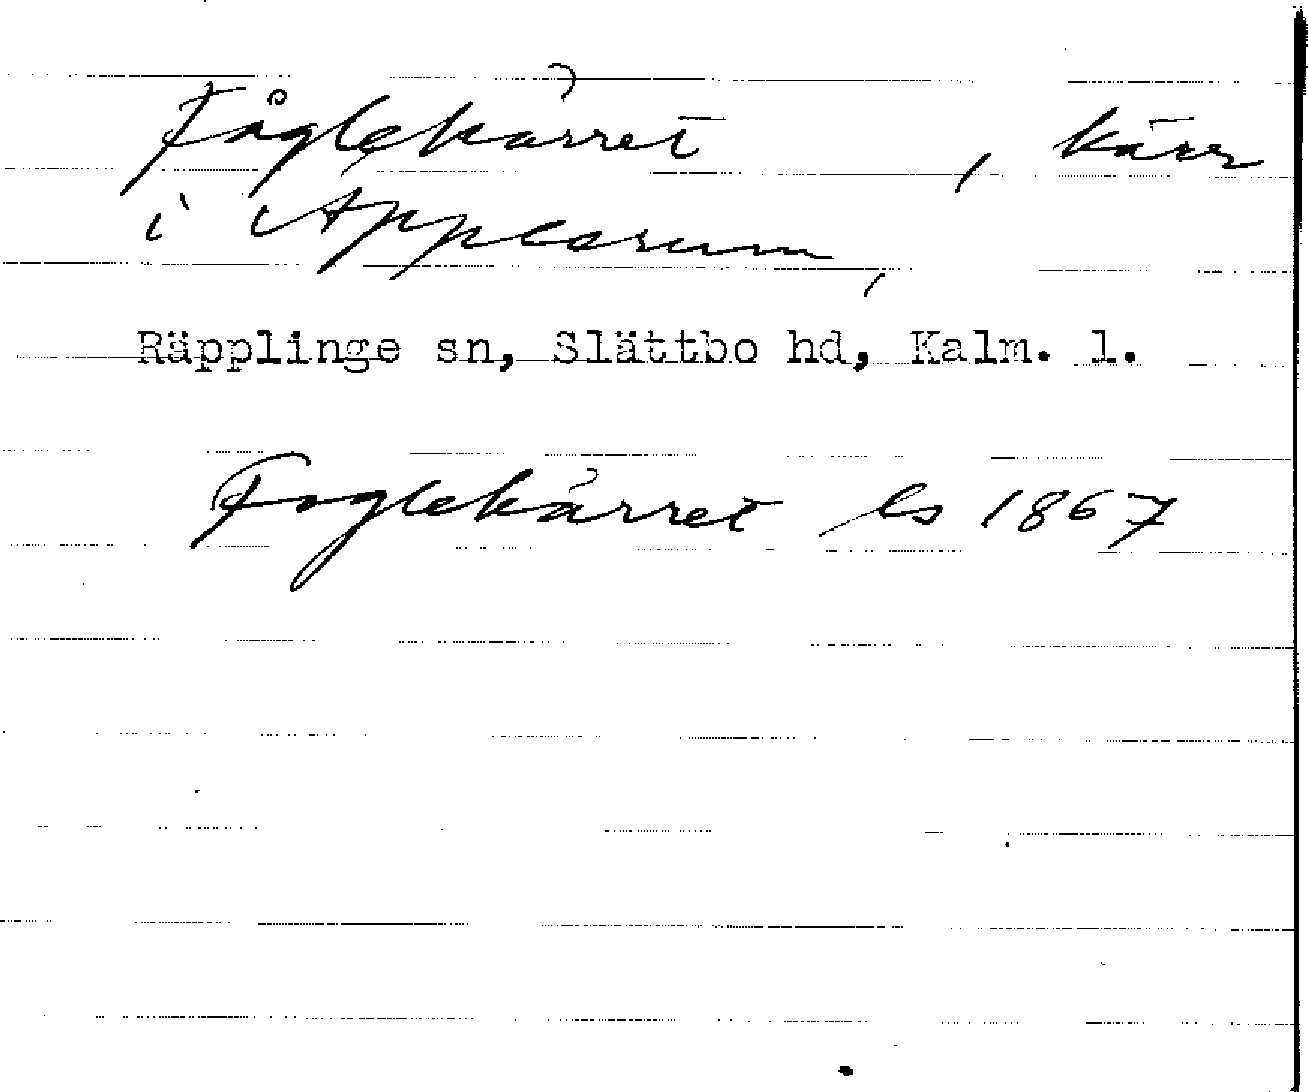 Fåglekärret, kärr
i Applerum,
Räpplinge sn, Slättbo hd, Kalm. l.
Foglekärret ls 1867